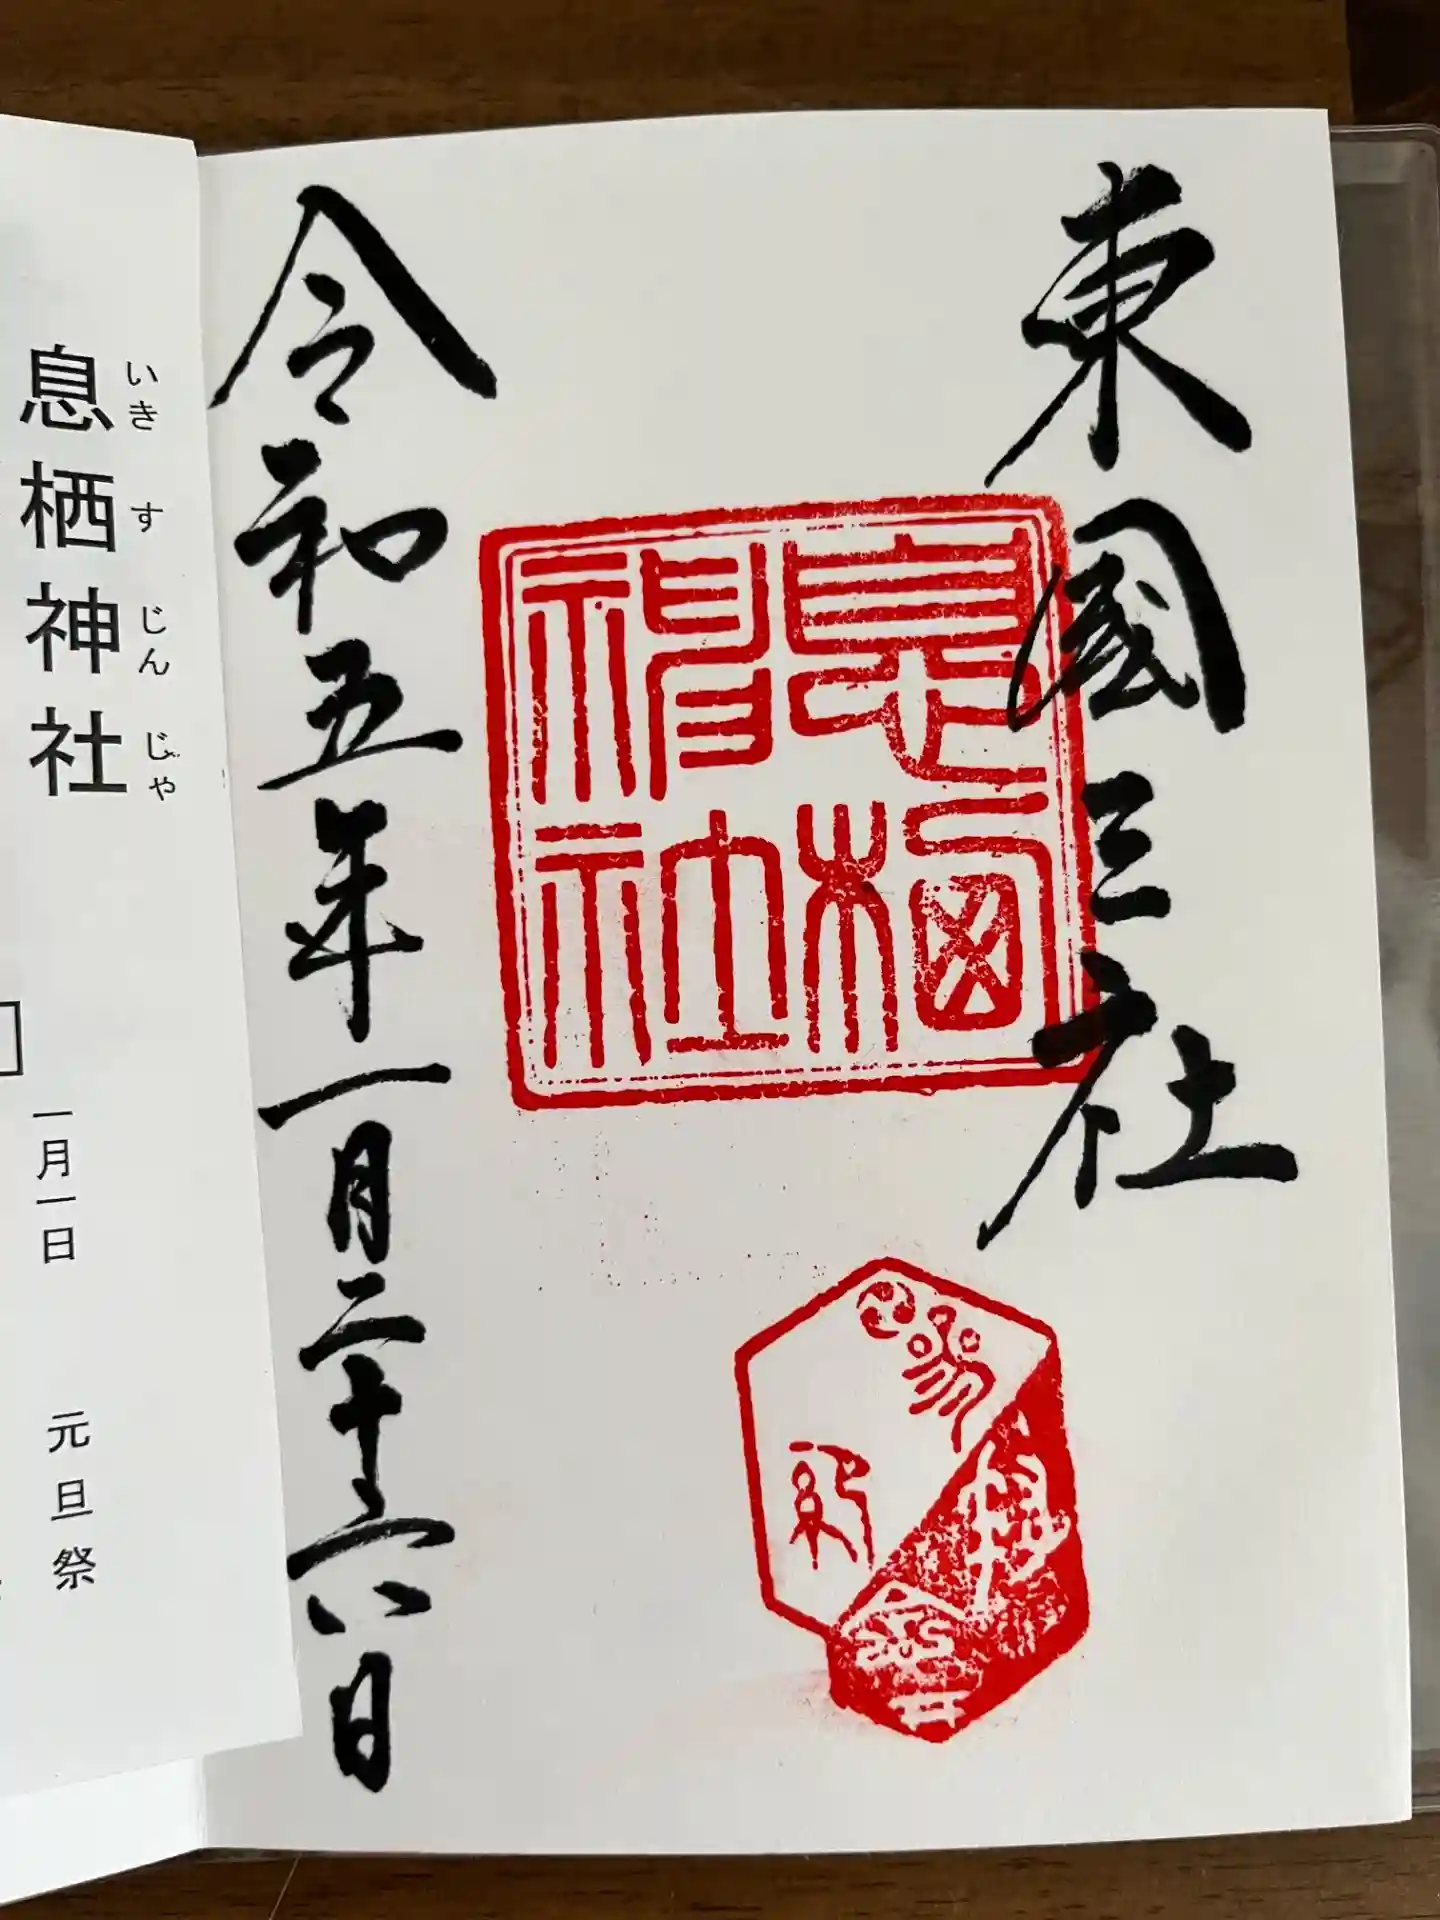 東國三社
息栖神社
令和五年一月二十六日
いきすじんじゃ
息栖神社
一月一日 元旦祭